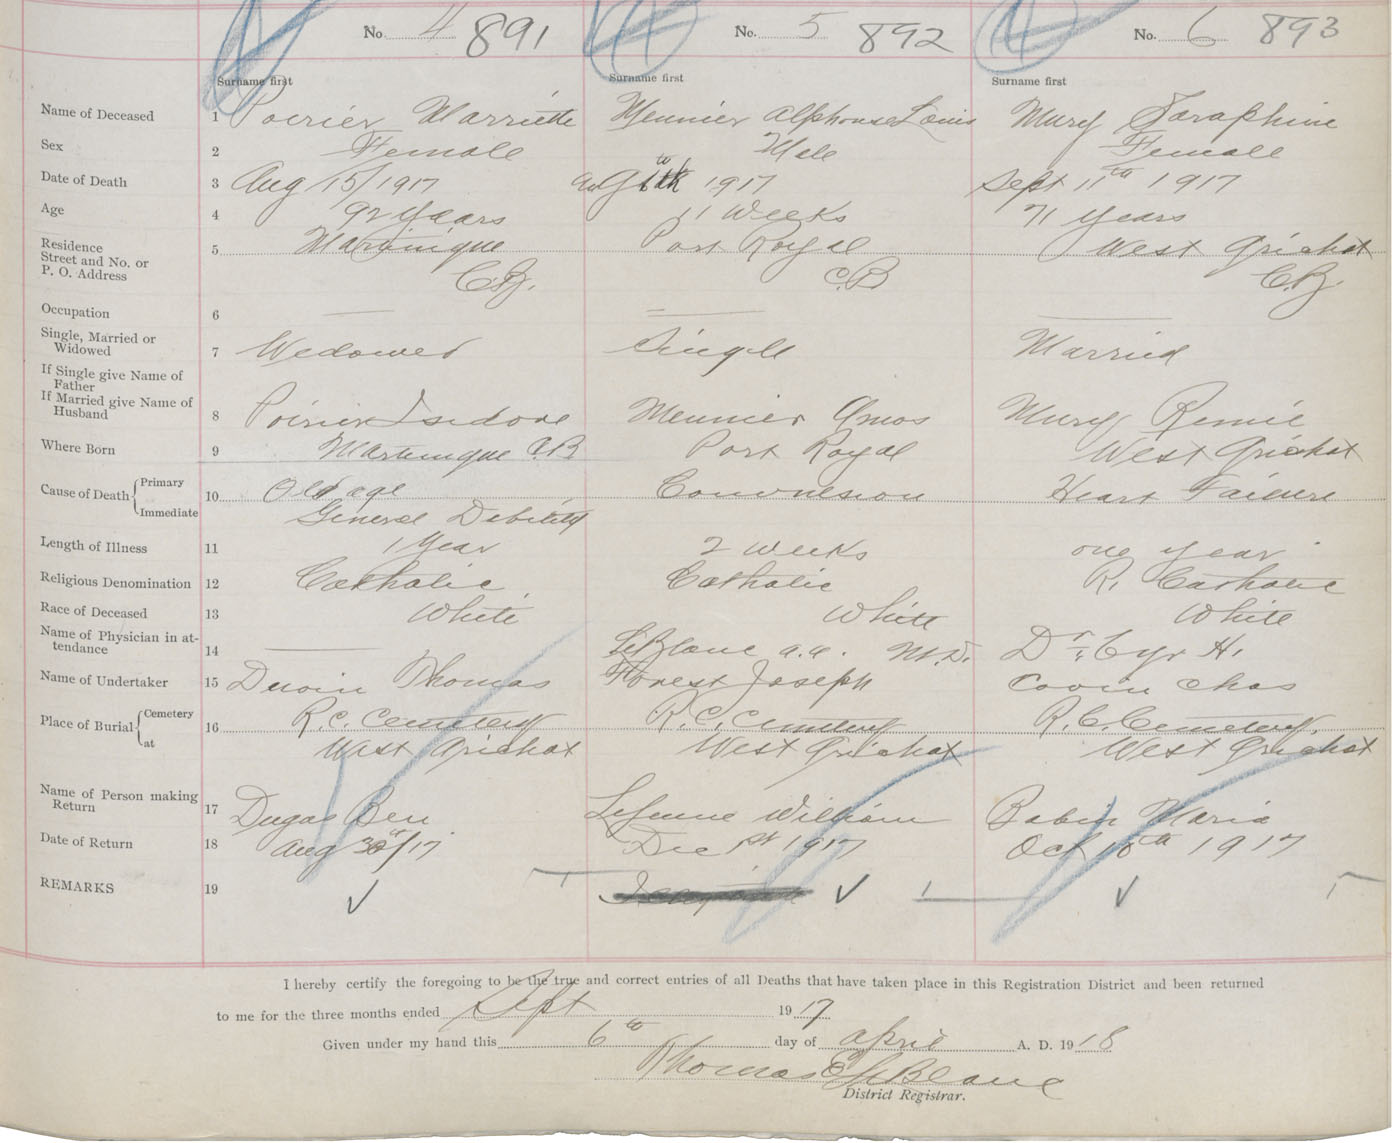 No. 4 891 No. 5 892 No. 6 893
Surname first Surname first Surname first
Name of Deceased 1 Poirier Marriette Meunier Alphonse Louis Mury Saraphine
Sex 2 Female Male Female
Date of Death 3 Aug 15/1917 Aug 6th 1917 Sept 11th 1917
Age 4 92 Years 11 Weeks 71 Years
Residence
Street and No. or
P. O. Address 5 Martinique Port Royal West Arichat
C.B. C.B C.B.
Occupation 6
Single, Married or
Widowed 7 Wedower Single Married
If Single give Name of
Father
If Married give Name of
Husband 8 Poirier Isidore Meunier Amos Mury Remie
Where Born 9 Martinique C.B Port Royal West Arichat
Cause of Death Primary
Immediate 10 Old age Convulsion Heart Failure
General Debility
Length of Illness 11 1 Year 2 Weeks one year
Religious Denomination 12 Catholic Catholic R. Catholic
Race of Deceased 13 White White White
Name of Physician in at-
tendance 14 LeBlanc a.a. M.D. Dr Cyr H.
Name of Undertaker 15 Thomas Forest Joseph Chas
Place of Burial Cemetery
at 16 R.C. Cemetery R.C. Cemetery R.C. Cemetery.
West Arichat West Arichat West Arichat
Name of Person making
Return 17 Dugas Ben LeJeune William Babin Maria
Date of Return 18 Aug /17 Dec 1st 1917 Oct 1917
REMARKS 19
I hereby certify the foregoing to be the true and correct entries of all Deaths that have taken place in this Registration District and been returned
to me for the three months ended Sept 1917
Given under my hand this 6th day of April A. D. 1918
Thomas LeBlanc
District Registrar.